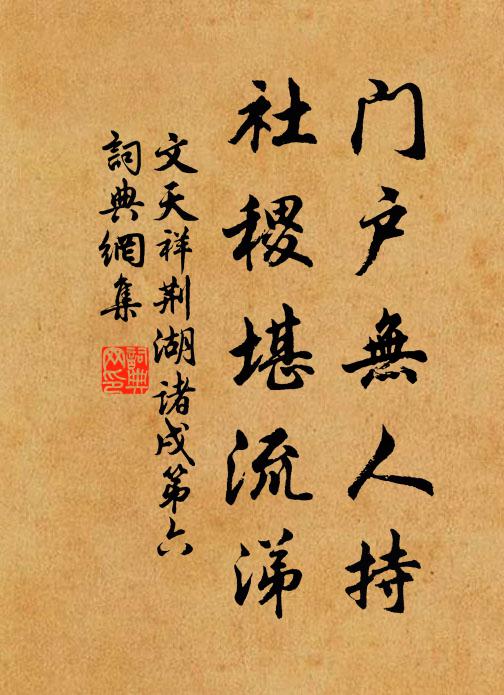 门户無人持
社稷堪流涕
文天祥荆湖諸戍第六
詞典網集
詞典
网印